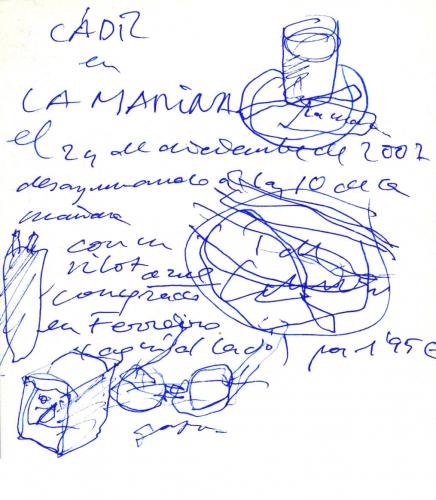 CÁDIZ
en
LA MARINA
el 24 de diciembre de 2007
desayunando a las 10 de la
mañana
con un
pilot azul
comprado
en Ferreiro
(aquí al lado) por 1'95 €
gafas